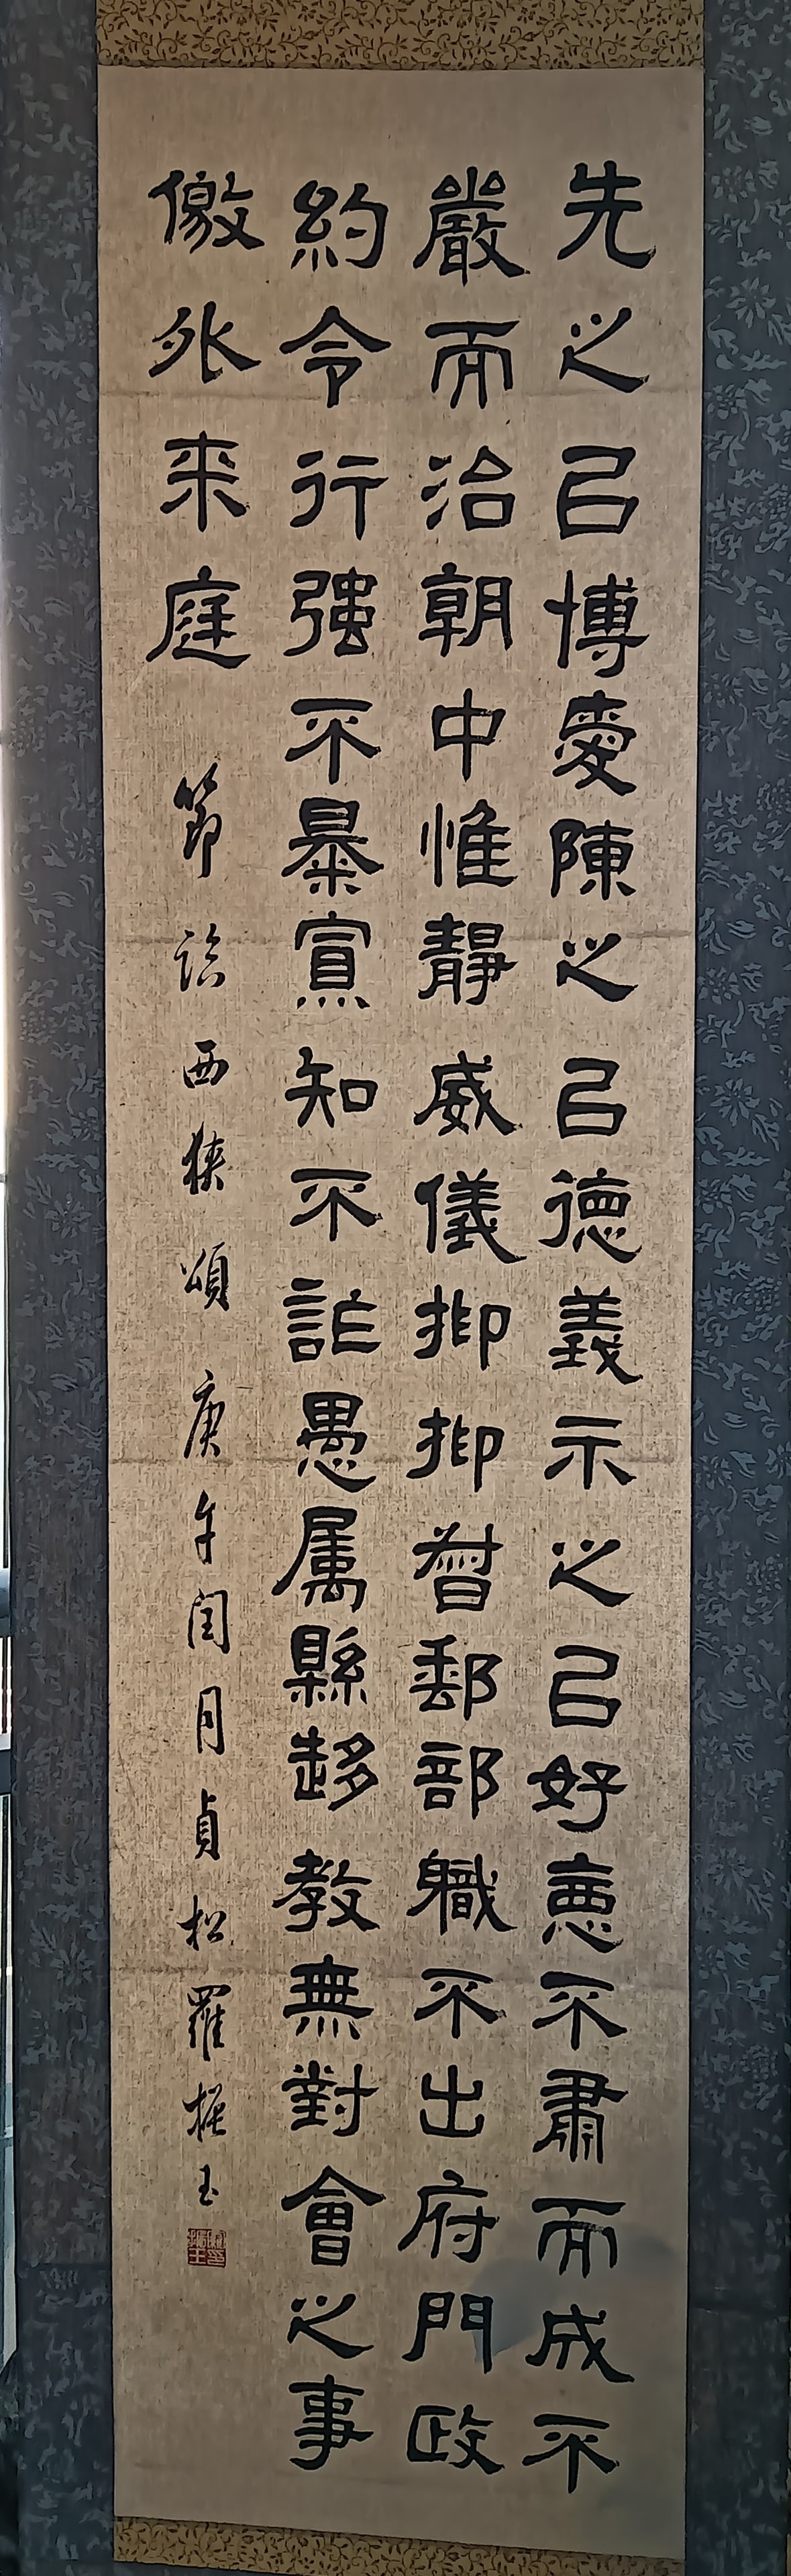 先之㠯博愛陳之㠯德義示之㠯好惡不肅而成不
嚴而治朝中惟靜威儀抑抑督郵部職不出府門政
約令行强不暴寡知不詐愚属縣趍教無對會之事
儌外来庭 節臨西狹頌庚午閏月貞松羅振玉